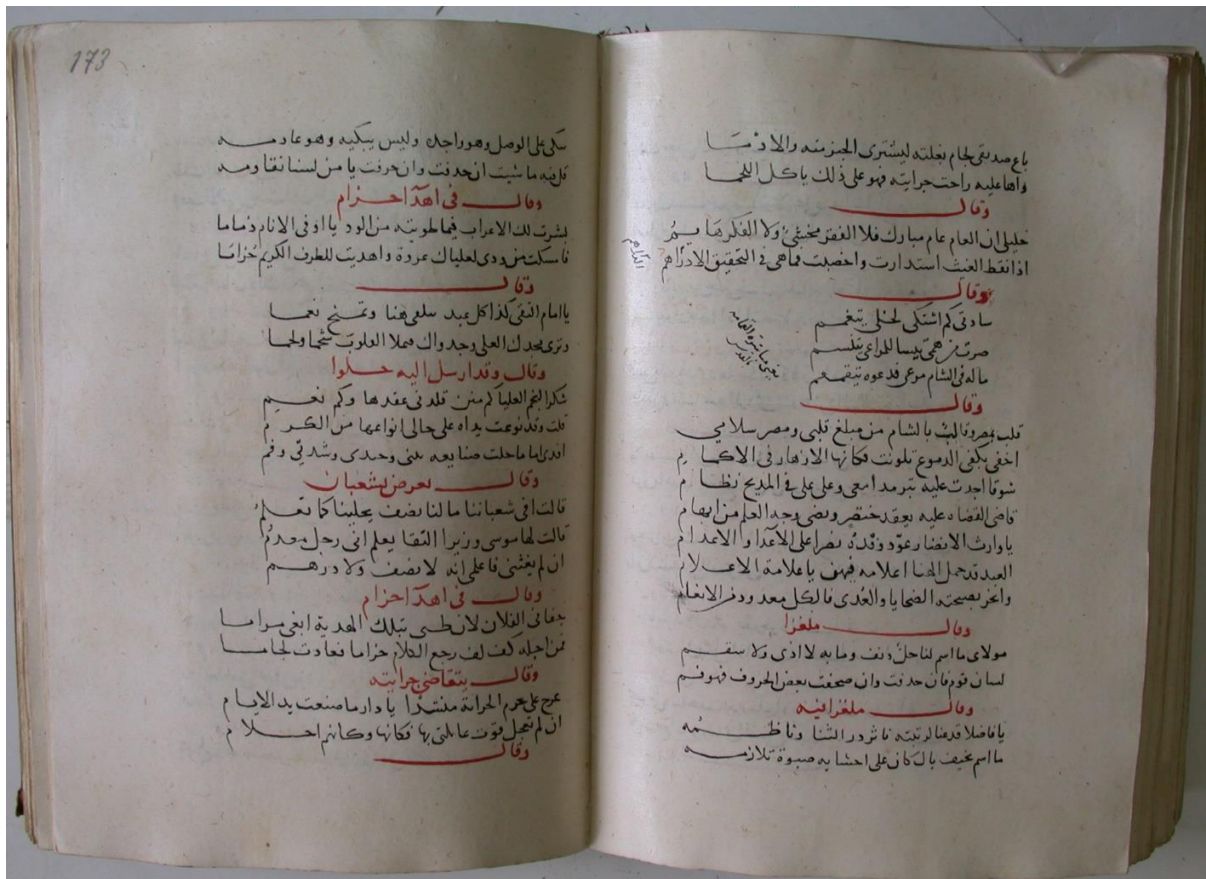 باع صديقي لجام بغلته ليشترى الخبز منه والادما
واها عليه راحت جرايته فهو على ذلك ياكل اللجما
وقال
خليلى ان العام عام مبارك فلا الفقر مخشى ولا الفكر هايم
اذا نقط الغيث استدارت واخصبت فما هى فى التحقيق الا دراهم
وقال
سادتى كم اشتكى لحظى بتغمم
صرت من همى تيسا للمراعى يتلسم
ماله فى الشام مرعى فدعوه يتقمقم
يعنى مباشرة القمامه
القدس
وقال
قلب بمصر وقالب بالشام من مبلغ قلبى ومصر سلامي
اخفى بكفى الدموع تلونت فكانها الازهار فى الاكمام
شوقا اجدت عليه نثر مدامعى وعلى على فى المديح نظام
قاضى القضاه عليه يعقد خنصر ويضى وجه العلم من ابهام
يا وارث الانصار عود وفده نصرا على الاعدا والاعدام
العيد قد حمل الهنا اعلامه فهن يا علامة الاعلام
وانحر بصبحته الضحايا والعدى فالكل معدود من الانعام
وقال ملغزا
مولاى ما اسم لناحل دنف وما به لا اذى ولا سقم
لسان قوم فان حذفت وان صحفت بعض الحروف فهو فم
وقال ملغزا فيه
يا فاضلا قد عنا لرتبته ناثر در الثنا وناظمه
ما اسم نحيف بال كان على احشايه صبوة تلازمه
173
يبكى على الوصل وهو واجده وليس يبكيه وهو عادمه
قل فيه ما شيت ان حذفت وان حرفت يا من لسنا نقاومه
وقال فى اهدا حزام
بشرت لك الاعراب فيما طويته من الود يا اوفى الانام ذماما
فامسكت من ودى لعلياك عروة واهديت للطرف الكريم حزاما
وقال
يا امام التقى كذا كل عيد سلقى هنا وتمنح نعما
وترى بحدك العلى وجدواك فيملا القلوب شحما ولحما
وقال وقد ارسل اليه حلوا
شكرا لنعم العليا كم منن قلدنى عقدها وكم نعم
قلت وقد نوعت يداه على حالى انواعها من الكرم
افدى اماما حلت صنايعه عندى وحدى وشدقى وفم
وقال يعرض بشعبان
قالت افى شعباننا مالنا نصف يحلينا كما تعلم
قالت لها موسى وزير التقا يعلم انى رجل معدم
ان لم يغثنى فاعلمى انه لا نصف ولا درهم
وقال فى اهدا حزام
جفانى الفلان لان طى بتلك الهدية ابغى مراما
فمن اجله كف لف رجع الكلام حزاما فعادت لجاما
وقال يتقاضى جرايته
عرج على حرم الجراية منشدا يا دار ما صنعت بد الايام
ان لم تعجل قوت عايلتى بها فكانها وكانهم احلام
وقال